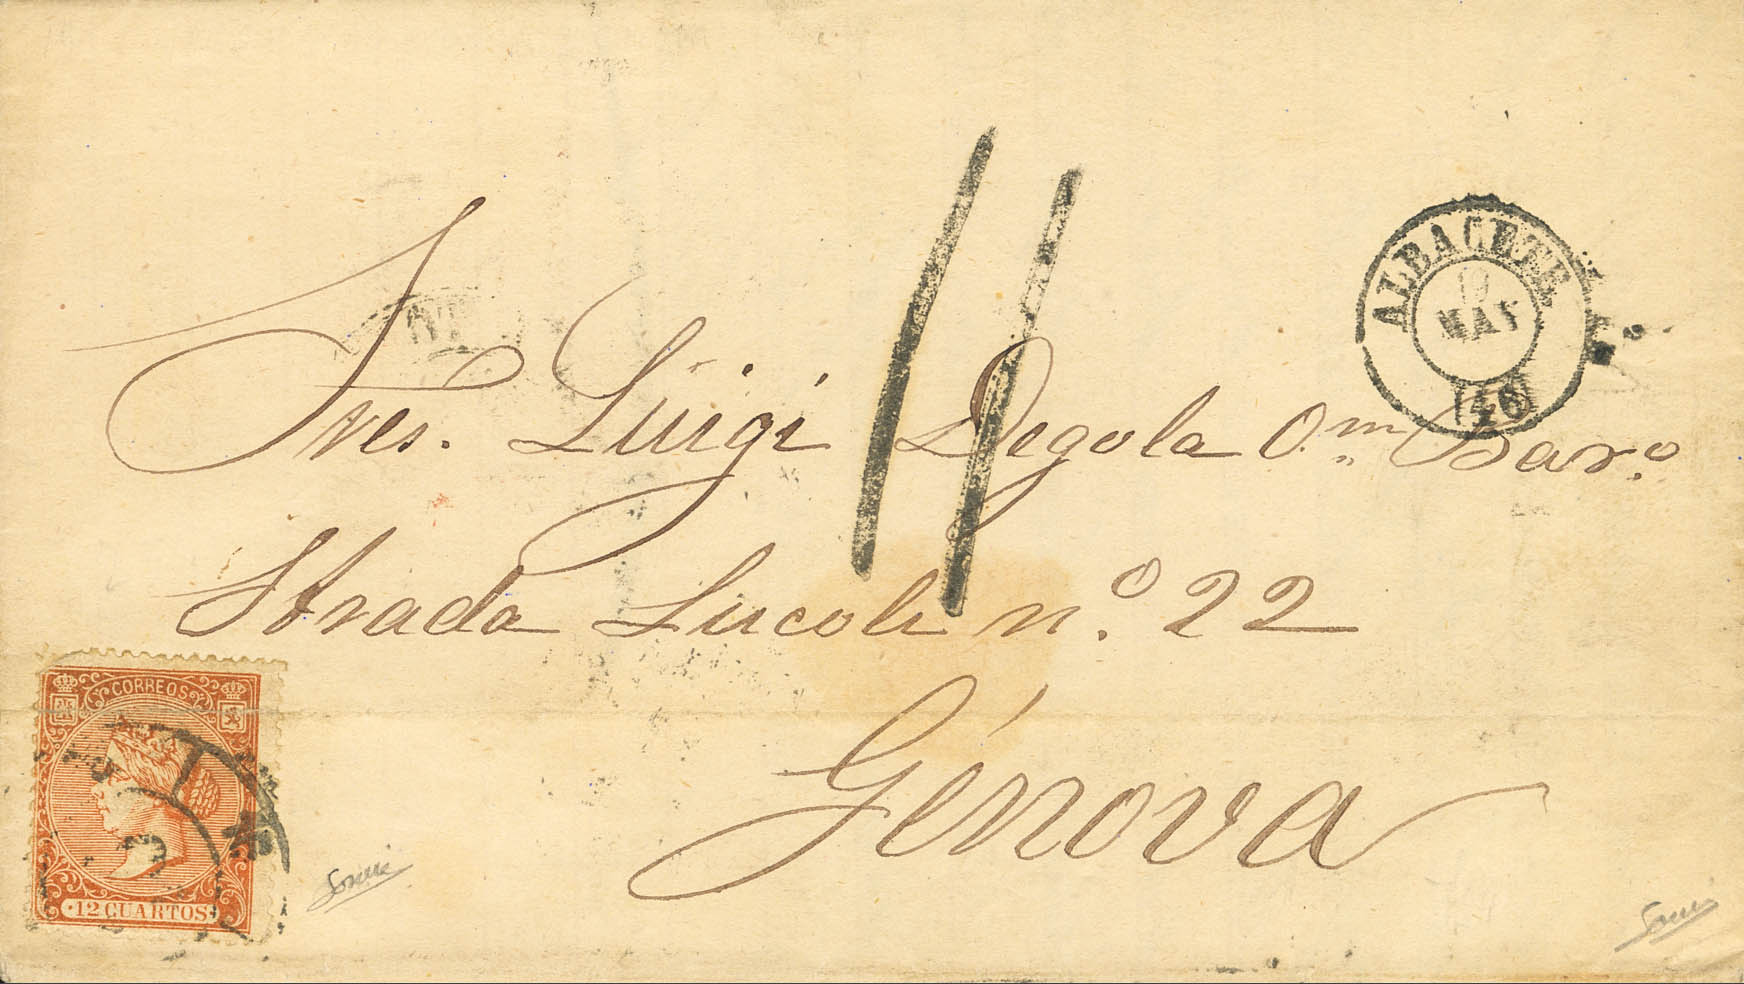 11
ALBACETE
19
MAY
(46)
Sres. Luigi Degola q.m Bar.o
Strada Lucoli n.o 22
Génova
CORREOS
12 CUARTOS